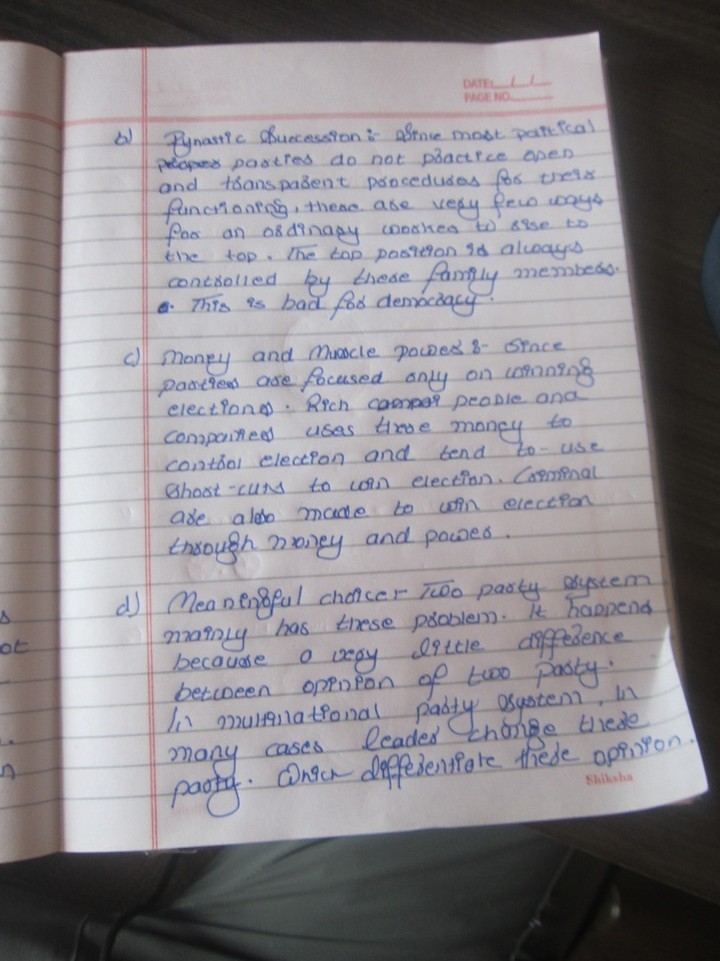 DATE: / /
PAGE NO.
b) Dynastic Succession :- Since most partical
parties do not practice open
and transparent procedures for their
functioning, there are very few ways
for an ordinary worker to rise to
the top. The top position is always
controlled by these family members.
This is bad for democracy.
c) Money and Muscle power :- Since
parties are focused only on winning
elections. Rich people and
companies uses three money to
control election and tend to use
Short-cuts to win election. Criminal
are also made to win election
through money and power.
d) Meaningful choice - Two party system
mainly has these problem. It happens
because a very little difference
between opinion of two party.
In multinational party system. In
many cases leader change these
party. Which differentiate these opinion.
Shiksha
s
ot
.
n